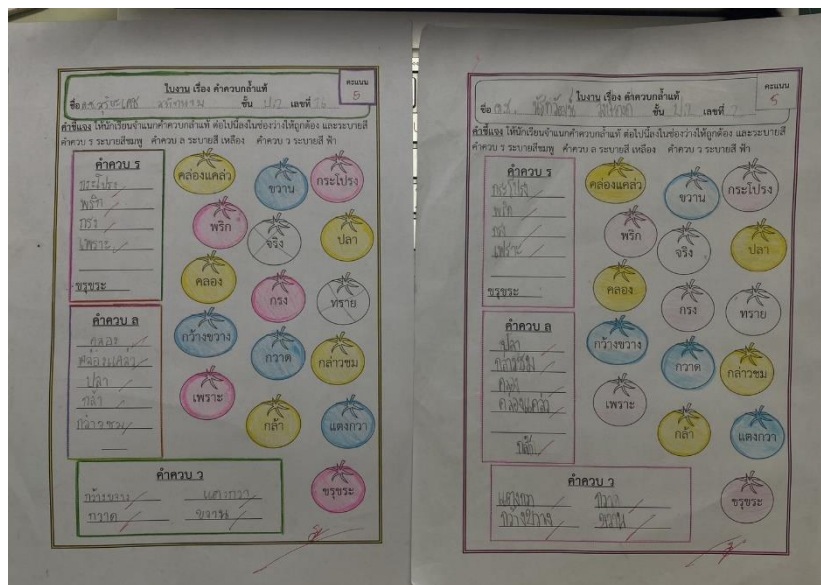 ใบงาน เรื่อง คำควบกล้ำแท้
คะแนน
5
ชื่อ ชั้น ป.2 เลขที่ 16
คำชี้แจง ให้นักเรียนจำแนกคำควบกล้ำแท้ ต่อไปนี้ลงในช่องว่างให้ถูกต้อง และระบายสี
คำควบ ร ระบายสีชมพู คำควบ ล ระบายสี เหลือง คำควบ ว ระบายสี ฟ้า
คำควบ ร
กระโปรง
พริก
กรง
เพราะ
ขรุขระ
คำควบ ล
คลอง
คล่องแคล่ว
ปลา
กล้า
กล่าวชม
คำควบ ว
กว้างขวาง แตงกวา
กวาด ขวาน
คล่องแคล่ว
ขวาน
กระโปรง
พริก
จริง
ปลา
คลอง
กรง
ทราย
กว้างขวาง
กวาด
กล่าวชม
เพราะ
กล้า
แตงกวา
ขรุขระ
ใบงาน เรื่อง คำควบกล้ำแท้
คะแนน
5
ชื่อ ด.ช. ชั้น ป.2 เลขที่ 2
คำชี้แจง ให้นักเรียนจำแนกคำควบกล้ำแท้ ต่อไปนี้ลงในช่องว่างให้ถูกต้อง และระบายสี
คำควบ ร ระบายสีชมพู คำควบ ล ระบายสี เหลือง คำควบ ว ระบายสี ฟ้า
คำควบ ร
กระโปรง
พริก
กรง
เพราะ
ขรุขระ
คำควบ ล
ปลา
กล่าวชม
คลอง
คล่องแคล่ว
กล้า
คำควบ ว
แตงกวา กวาด
กว้างขวาง ขวาน
คล่องแคล่ว
ขวาน
กระโปรง
พริก
จริง
ปลา
คลอง
กรง
ทราย
กว้างขวาง
กวาด
กล่าวชม
เพราะ
กล้า
แตงกวา
ขรุขระ